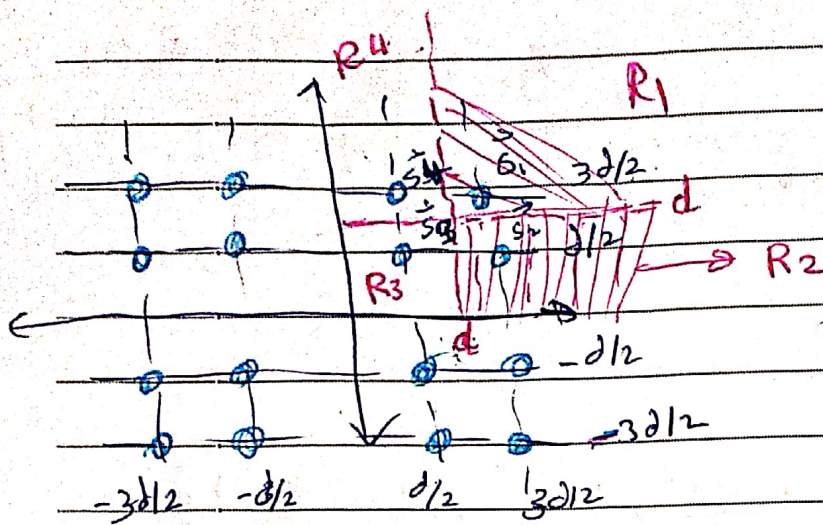 R4
R1
S4 S1 3d/2
d
S3 S2 d/2
R3 R2
d
-d/2
-3d/2
-3d/2 -d/2 d/2 3d/2